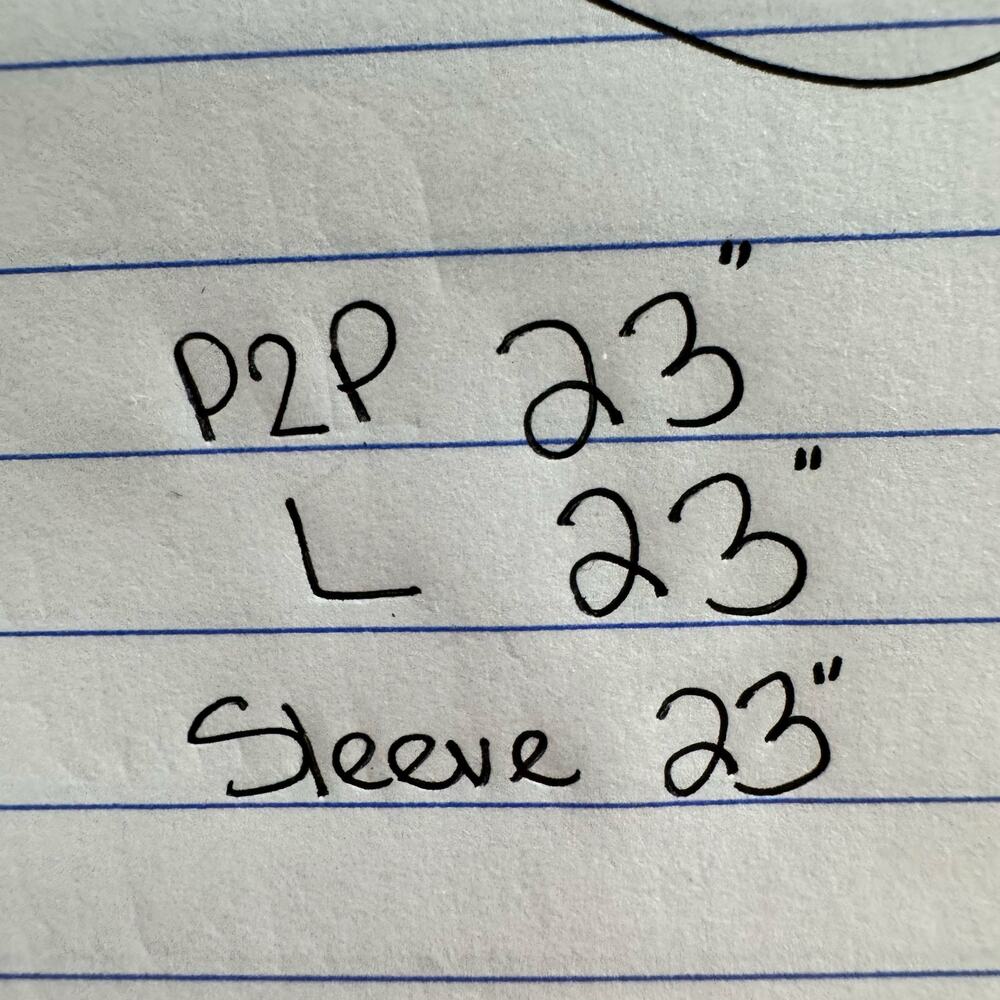 P2P 23"
L 23"
Sleeve 23"